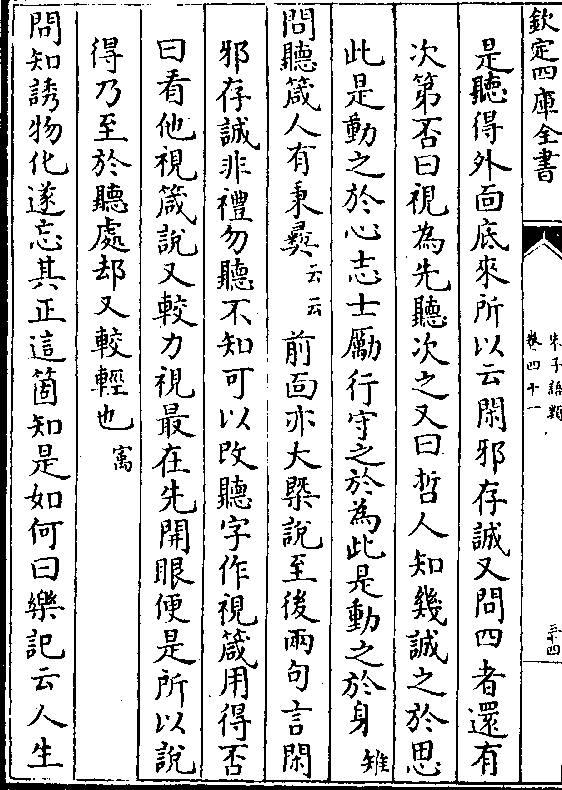 欽定四庫全書
朱子語類
卷四十一
三十四
是聽得外面底來所以云閑邪存誠又問四者還有
次第否曰視為先聽次之又曰哲人知幾誠之於思
此是動之於心志士勵行守之於為此是動之於身雉
問聽箴人有秉彛云云前面亦大槩說至後兩句言閑
邪存誠非禮勿聽不知可以改聽字作視箴用得否
曰看他視箴說又較力視最在先開眼便是所以說
得乃至於聽處却又較輕也㝢
問知誘物化遂忘其正這箇知是如何曰樂記云人生